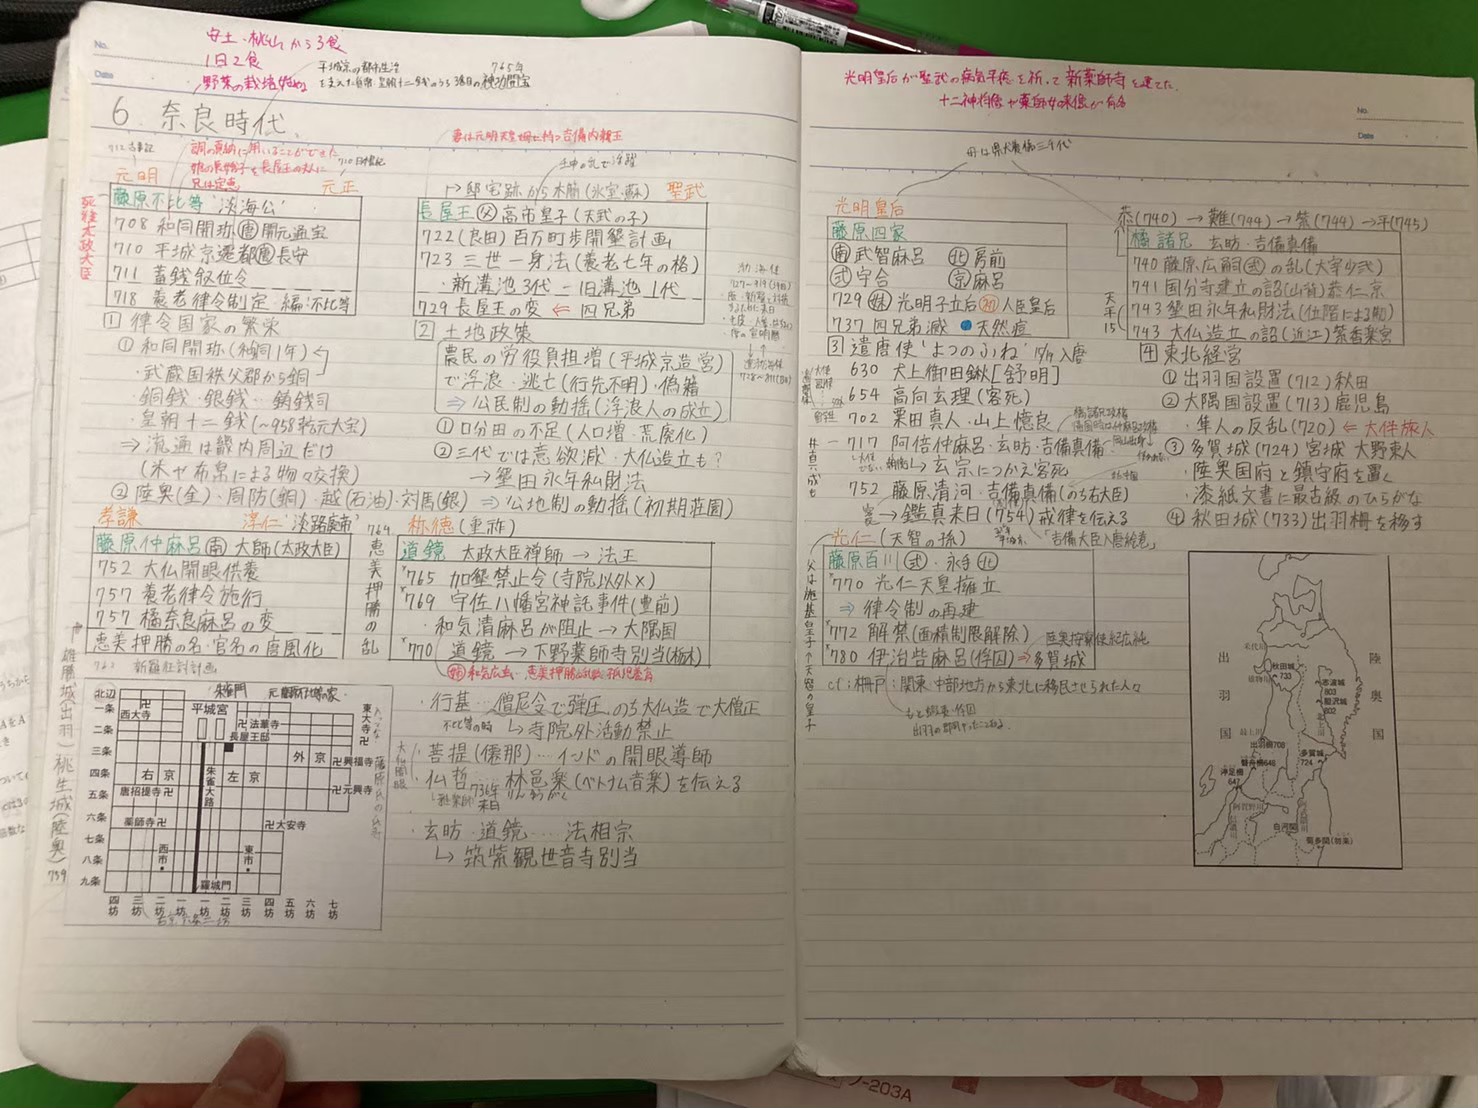 安土・桃山から3食
1日2食
野菜の栽培始める
平城京の都市生活
を支えた自帯
皇朝十二銭のうち3番目の神功開宝
765年
No.
Date
6. 奈良時代
712古事記
銅の真納に用いることができた
娘の長娥子を長屋王の夫人に
720日本書紀
元明
元正
死後太政大臣
藤原不比等 '淡海公'
708 和同開珎 唐 開元通宝
710 平城京遷都 唐 長安
711 蓄銭叙位令
718 養老律令制定・編:不比等
1 律令国家の繁栄
① 和同開珎(和銅1年)
・武蔵国秩父郡から銅
・銅銭・銀銭・鋳銭司
皇朝十二銭(~958乾元大宝)
⇒ 流通は畿内周辺だけ
(米や布帛による物々交換)
② 陸奥(金)・周防(銅)・越(石油)・対馬(銀)
妻は元明天皇娘に持つ吉備内親王
壬申の乱で活躍
→邸宅跡から木簡(氷室・蘇)
聖武
長屋王 父 高市皇子(天武の子)
722(良田)百万町歩開墾計画
723 三世一身法(養老七年の格)
・新溝池3代-旧溝池1代
729 長屋王の変 ⇐ 四兄弟
2 土地政策
農民の労役負担増(平城京造宮)
で浮浪・逃亡(行先不明)・偽籍
⇒ 公民制の動揺(浮浪人の成立)
① 口分田の不足(人口増・荒廃化)
② 三代では意欲減・大仏造立も?
→墾田永年私財法
⇒ 公地制の動揺(初期荘園)
渤海使
孝謙
淳仁 '淡路廃帝'
藤原仲麻呂 南 大師(太政大臣)
752 大仏開眼供養
757 養老律令施行
757 橘奈良麻呂の変
恵美押勝の名・官名の唐風化
762 新羅征討計画
764
恵美押勝の乱
称徳(重祚)
道鏡 太政大臣禅師 → 法王
765 加墾禁止令(寺院以外×)
769 宇佐八幡宮神託事件(豊前)
・和気清麻呂が阻止→大隅国
770 道鏡→下野薬師寺別当(栃木)
姉 和気広虫・恵美押勝の乱後孤児養育
・行基…僧尼令で弾圧 のち大仏造で大僧正
不比等の時
↳寺院外活動禁止
・菩提(僊那)…インドの開眼導師
大仏開眼
・仏哲…林邑楽(ベトナム音楽)を伝える
736年
来日
りんゆうがく
・玄昉・道鏡…法相宗
↳ 筑紫観世音寺別当
雄勝城(出羽) 桃生城(陸奥)
759
朱雀門
北辺
一条
二条
三条
四条
五条
六条
七条
八条
九条
平城宮
西大寺
法華寺
長屋王邸
東大寺
外京
興福寺
右京
朱雀大路
左京
唐招提寺
元興寺
薬師寺
大安寺
西市
東市
羅城門
四坊 三坊 二坊 一坊 一坊 二坊 三坊 四坊 五坊 六坊 七坊
光明皇后が聖武の病気平癒を祈って新薬師寺を建てた.
十二神将像や薬師如来像が有名
No.
Date
母は県犬養橘三千代
光明皇后
藤原四家
南 武智麻呂 北 房前
式 宇合 京 麻呂
729 妹 光明子立后 初 人臣皇后
737 四兄弟滅 ● 天然痘
3 遣唐使 'よつのふね' 15/19入唐
630 犬上御田鍬[舒明]
654 高向玄理(客死)
702 粟田真人・山上憶良
717 阿倍仲麻呂・玄昉・吉備真備
↳玄宗につかえ客死
井真成も
752 藤原清河・吉備真備(のち右大臣)
→鑑真来日(754)戒律を伝える
「吉備大臣入唐絵巻」
恭(740)→難(744)→紫(744)→平(745)
橘諸兄 玄昉・吉備真備
740 藤原広嗣 式 の乱(大宰少弐)
741 国分寺建立の詔(山背)恭仁京
743 墾田永年私財法(位階による制)
743 大仏造立の詔(近江)紫香楽宮
天平15
4 東北経営
① 出羽国設置(712)秋田
② 大隅国設置(713)鹿児島
・隼人の反乱(720) ⇐大伴旅人
③ 多賀城(724)宮城 大野東人
・陸奥国府と鎮守府を置く
・漆紙文書に最古級のひらがな
④ 秋田城(733)出羽柵を移す
光仁(天智の孫)
父は施基皇子↑天智の皇子
藤原百川 式・永手 北
770 光仁天皇擁立
⇒ 律令制の再建
772 解禁(面積制限解除)
陸奥按察使紀広純
780 伊治呰麻呂(俘囚)⇒多賀城
cf:柵戸:関東・中部地方から東北に移民させられた人々
もと蝦夷・俘囚
出羽国
陸奥国
秋田城
733
志波城
803
胆沢城
802
出羽柵708
多賀城
724
磐舟柵648
渟足柵
647
阿賀野川
信濃川
白河関
菊多関(勿来)
ノ-203A